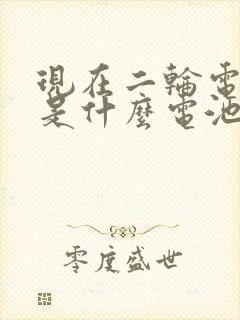 現在二輪電
是什麼電池
零度盛世